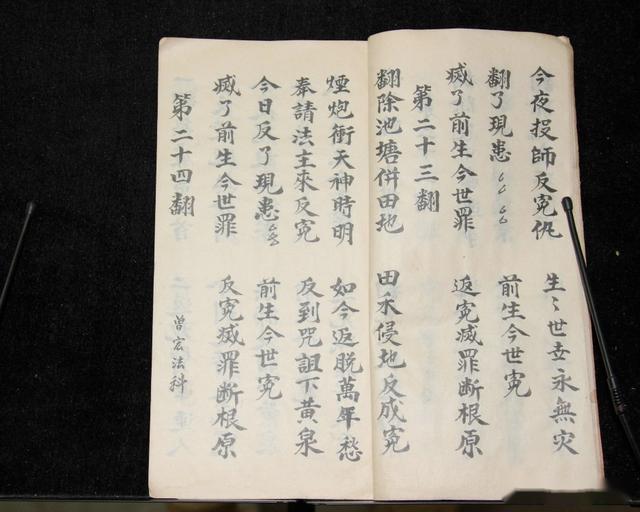 今夜投師反冤仇 生〻世世永無灾
翻了現患〻〻〻〻 前生今世冤
滅了前生今世罪 返冤滅罪断根原
第二十三翻
翻除池塘併田地 田禾侵地反成冤
煙炮衝天神時明 如今返脱萬年愁
奉請法主來反冤 反到咒詛下黄泉
今日反了現患〻〻〻 前生今世冤
滅了前生今世罪 反冤滅罪断根原
第二十四翻 曾宏法科